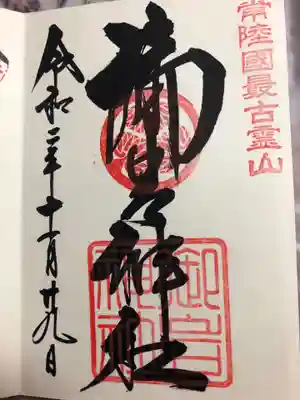 常陸國最古霊山
御岩神社
御岩神社
令和二年十一月廿九日